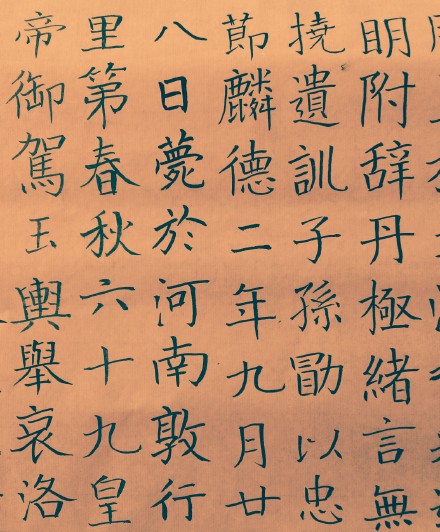 眀附辞丹極緒言無
撓遺訓子孫勖以忠
節麟德二年九月廿
八日薨於河南敦行
里第春秋六十九皇
帝御駕玉輿舉哀洛